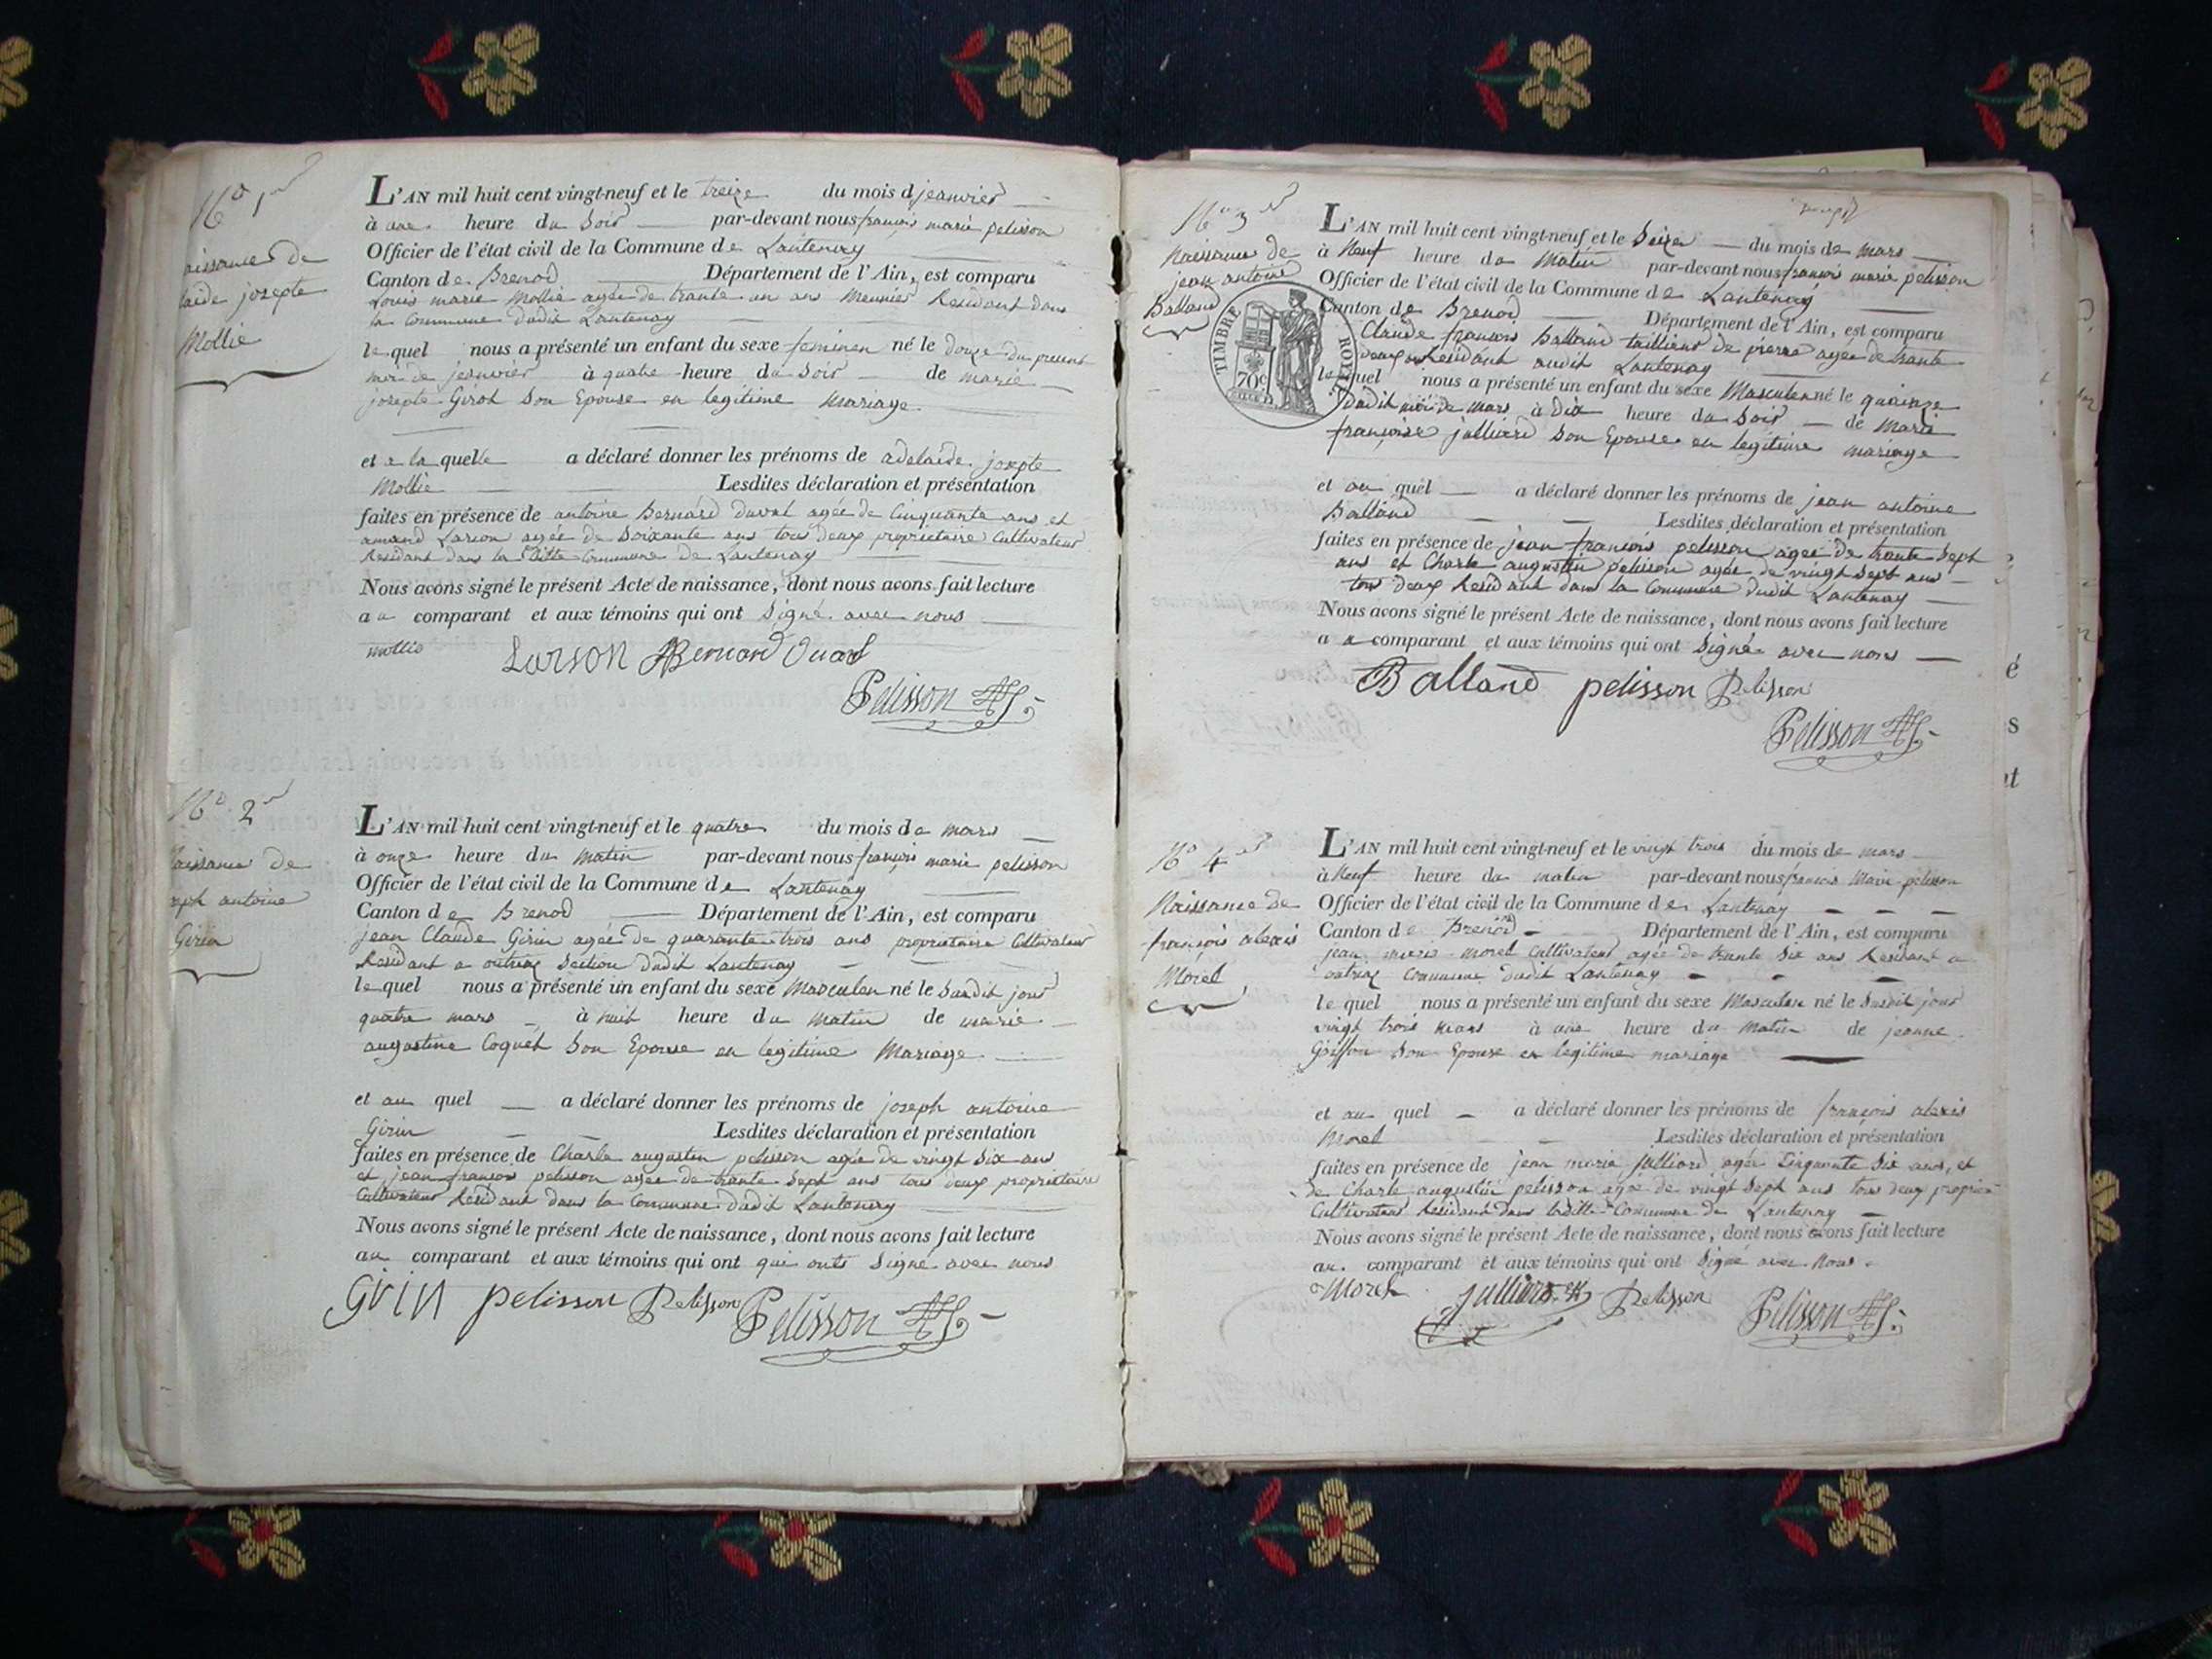 No 1er
aissance de
laide josepte
Mollie
L'AN mil huit cent vingt-neuf et le treize du mois d jeanvier
à une heure du Soir par-devant nous françois marie pelisson
Officier de l'état civil de la Commune de Lantenay
Canton de Brenod Département de l'Ain, est comparu
Louis marie Mollie agée de trante un ans Meunier Residant dans
la Commune dudit Lantenay
le quel nous a présenté un enfant du sexe feminen né le douze du present
mois de jeanvier à quatre heure du Soir de marie
josepte Girot Son Epouse en legitime Mariage
et a la quelle a déclaré donner les prénoms de adelaide josepte
Mollie Lesdites déclaration et présentation
faites en présence de antoine Bernard Duvat agée de Cinquante ans et
amand Larson agée de Soixante ans tous deux proprietaire Cultivateur
Residant dans la ditte Commune de Lantenay
Nous avons signé le présent Acte de naissance, dont nous avons fait lecture
au comparant et aux témoins qui ont Signé avec nous
mollie Larson Bernard Duvat
Pelisson
No 2
aissance de
seph antoine
Girin
L'AN mil huit cent vingt-neuf et le quatre du mois de mars
à onze heure du matin par-devant nous françois marie pelisson
Officier de l'état civil de la Commune de Lantenay
Canton de Brenod Département de l'Ain, est comparu
jean Claude Girin agée de quarante trois ans proprietaire Cultivateur
Residant a outriaz Section dudit Lantenay
le quel nous a présenté un enfant du sexe Masculen né le Susdit jour
quatre mars à huit heure du matin de marie
augustine Coquet Son Epouse en legitime Mariage
et au quel a déclaré donner les prénoms de joseph antoine
Girin Lesdites déclaration et présentation
faites en présence de Charle augusten pelisson agée de vingt Six ans
et jean françois pelisson agée de trante Sept ans tous deux proprietaire
Cultivateur Residant dans la Commune dudit Lantenay
Nous avons signé le présent Acte de naissance, dont nous avons fait lecture
au comparant et aux témoins qui ont qui onts Signé avec nous
Girin pelisson Pelisson Pelisson
No 3
Naissance de
jean antoine
Balland
TIMBRE ROYAL
70c
L'AN mil huit cent vingt-neuf et le Seize du mois de mars
à Neuf heure du Matin par-devant nous françois marie pelisson
Officier de l'état civil de la Commune de Lantenay
Canton de Brenod Département de l'Ain, est comparu
Claude françois Balland taillieur de pierre agée de trante
deux ans Residant audit Lantenay
le quel nous a présenté un enfant du sexe Masculen né le quainze
Dudit mois de mars à dix heure du Soir de Marie
françoise julliard Son Epouse en legitime mariage
et au quel a déclaré donner les prénoms de jean antoine
Balland Lesdites déclaration et présentation
faites en présence de jean françois pelisson agée de trante Sept
ans et Charle augustin pelisson agée de vingt Sept ans
tous deux Residant dans la Commune dudit Lantenay
Nous avons signé le présent Acte de naissance, dont nous avons fait lecture
au comparant et aux témoins qui ont Signé avec nous
Balland pelisson Pelisson
Pelisson
No 4
Naissance de
françois alexis
Morel
L'AN mil huit cent vingt-neuf et le vingt trois du mois de mars
à Neuf heure du matin par-devant nous françois Marie pelisson
Officier de l'état civil de la Commune de Lantenay
Canton de Brenod Département de l'Ain, est comparu
jean marie morel Cultivateur agée de trante Six ans Residant a
outriaz Commune dudit Lantenay
le quel nous a présenté un enfant du sexe Masculen né le Susdit jour
vingt trois mars à une heure du Matin de jeanne
Goiffon Son Epouse en legitime mariage
et au quel a déclaré donner les prénoms de françois alexis
Morel Lesdites déclaration et présentation
faites en présence de jean marie julliard agée Cinquante Six ans, et
de Charle augustin pelisson agée de vingt Sept ans tous deux
Cultivateur Residant dans laditte Commune de Lantenay
Nous avons signé le présent Acte de naissance, dont nous avons fait lecture
au comparant et aux témoins qui ont Signé avec nous
Morel julliard Pelisson Pelisson
é
s
t